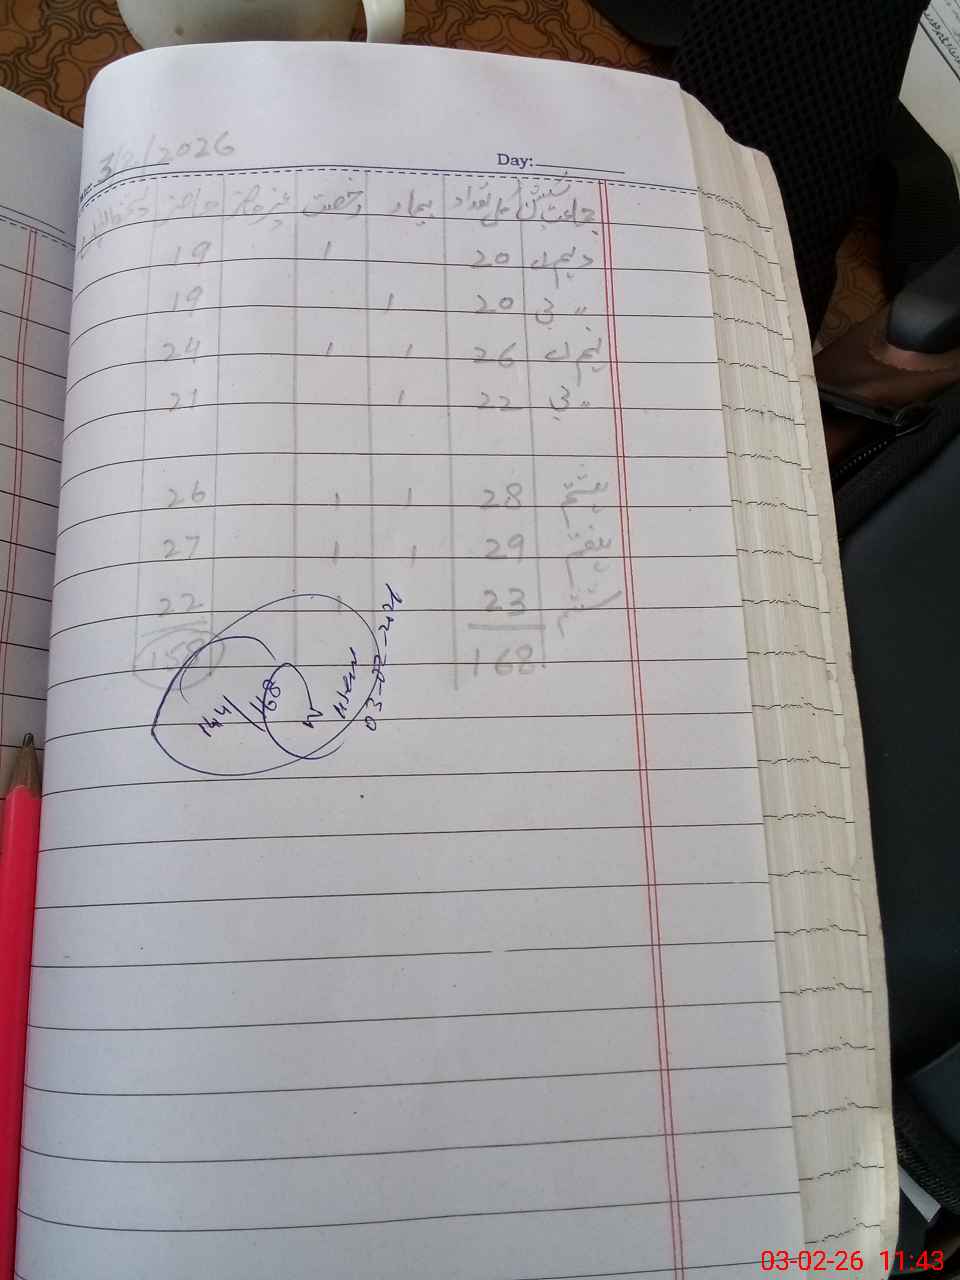 3/2/2026
Day:
جماعت سیکشن کل تعداد بیمار رخصت غیر حاضر حاضر
دہم اے 20 1 19
〃 بی 20 1 19
نہم اے 26 1 1 24
〃 بی 22 1 21
ہشتم 28 1 1 26
ہفتم 29 1 1 27
ششم 23 1 22
168 158
144/168
03-02-2026
03-02-26 11:43